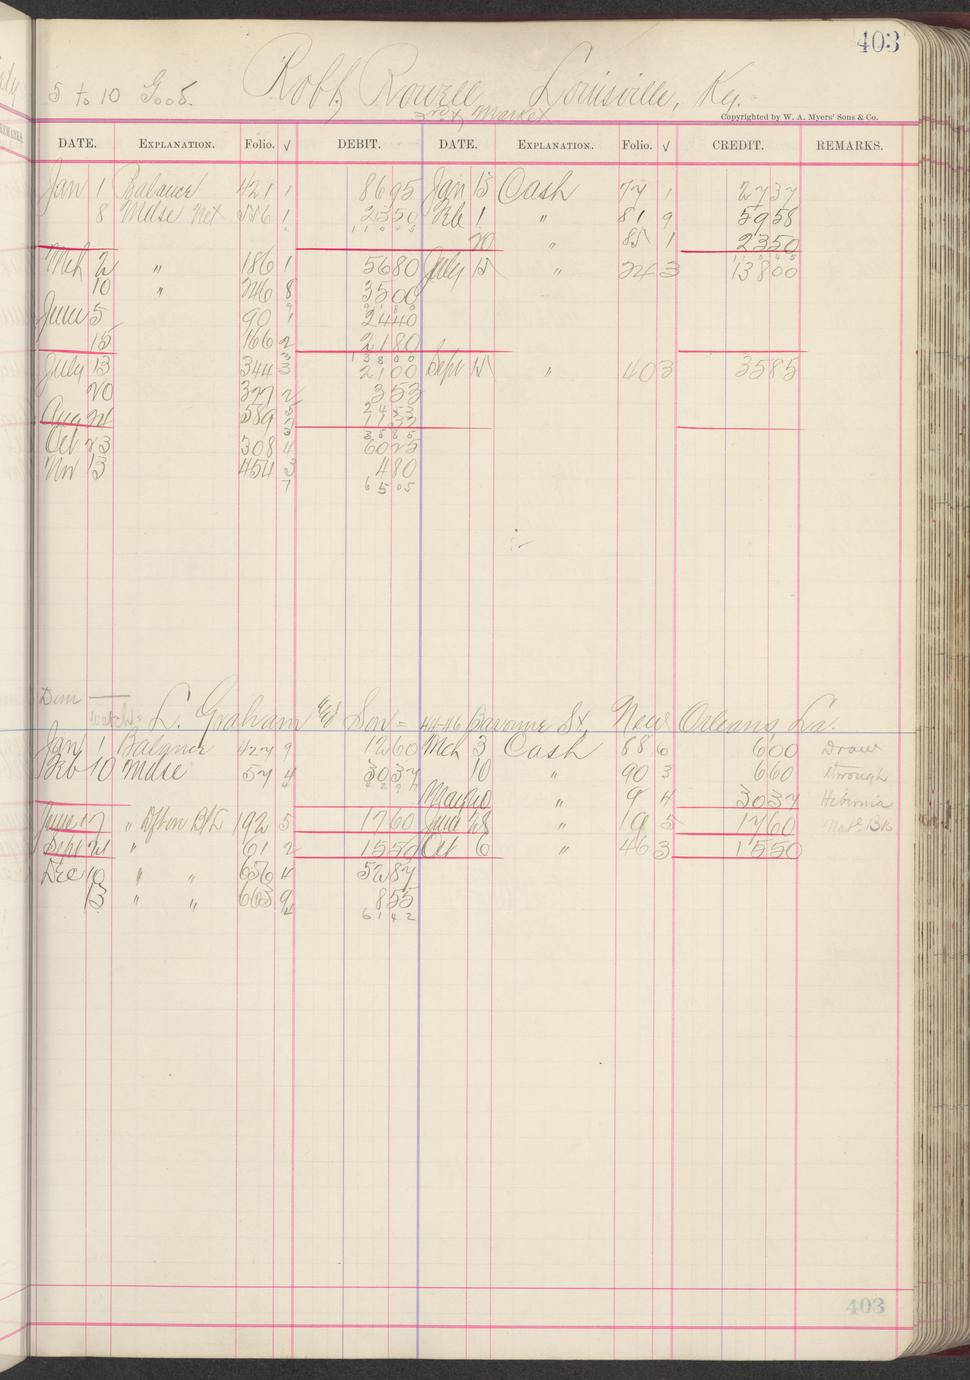 403
5 to 10 Good. Robt. Rowell Louisville, Ky.
3rd & Market
Copyrighted by W. A. Myers' Sons & Co.
DATE. EXPLANATION. Folio. √ DEBIT. DATE. EXPLANATION. Folio. √ CREDIT. REMARKS.
Jan 1 Balance 421 1 8695 Jan 13 Cash 77 1 2737
8 Mdse Net 1 2350 Feb 1 " 81 9 5958
11045 " 85 1 2350
Mch 2 " 186 1 5680 July 15 " 243 13800
10 " 246 8 3500
June 5 90 1 2440
15 166 2 2180
13800
July 13 344 3 2100 Sept 15 " 403 3585
20 327 2 353
2453
Aug 24 589 1133
3585
Oct 23 308 4 6025
Nov 13 454 3 480
7 6505
Dun
Watch L. Graham & Son = 44-46 Baronne St, New Orleans, La.
Jan 1 Balance 427 9 1260 Mch 3 Cash 88 6 600 Draw
Feb 10 Mdse 57 4 3037 10 " 90 3 660 through
4297
May 10 " 9 4 3037 Hibernia
June 17 " 192 5 1760 June 28 " 19 5 1760 Natl Bk
Sept 21 " 61 2 1550 Oct 6 " 46 3 1550
Dec 10 " " 656 4 5287
13 " " 663 9 855
6142
403